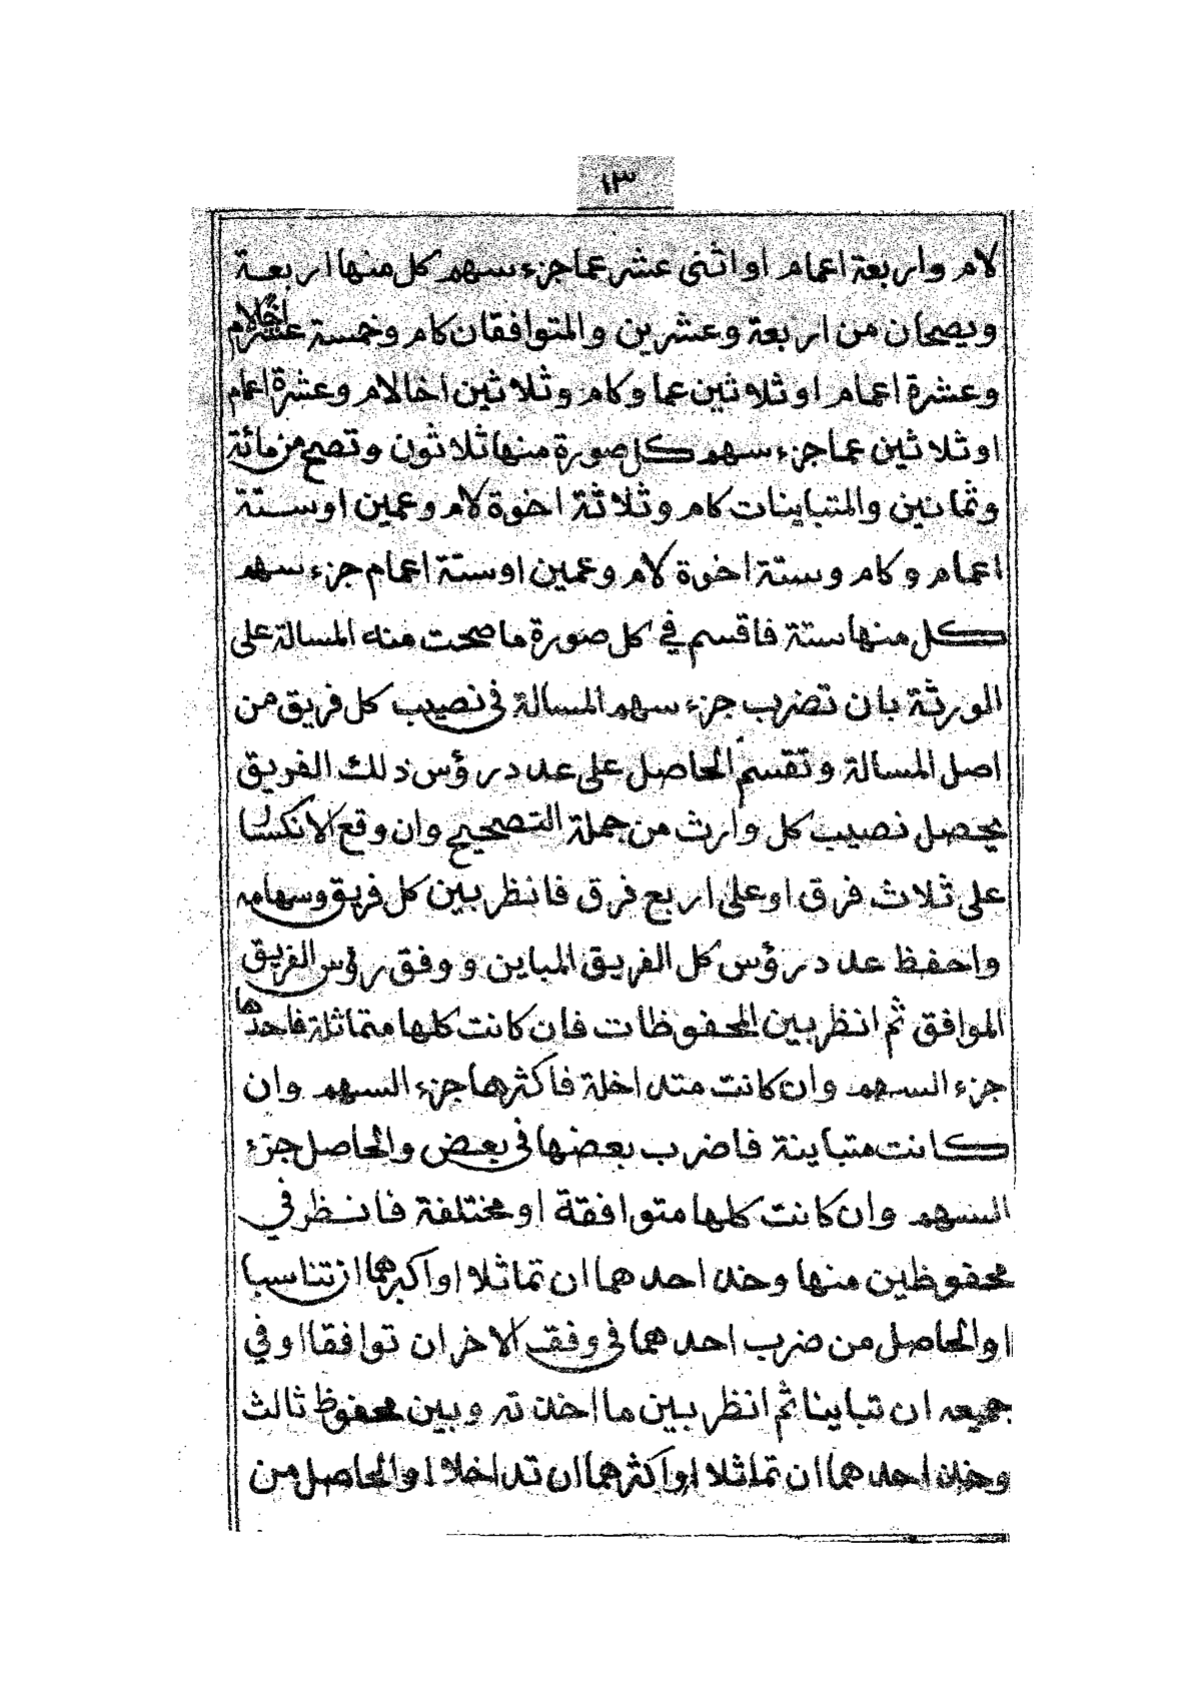 ١٣
لام واربعة اعمام او اثنى عشر عما جزء سهم كل منها اربعة
ويصحان من اربعة وعشرين والمتوافقان كام وخمسة عشر اخا لام
وعشرة اعمام او ثلاثين عما وكام وثلاثين اخا لام وعشرة اعمام
او ثلاثين عما جزء سهم كل صورة منها ثلاثون وتصح من مائة
وثمانين والمتباينات كام وثلاثة اخوة لام وعمين او ستة
اعمام وكام وستة اخوة لام وعمين او ستة اعمام جزء سهم
كل منها ستة فاقسم في كل صورة ما صحت منه المسالة على
الورثة بان تضرب جزء سهم المسالة في نصيب كل فريق من
اصل المسالة وتقسم الحاصل على عدد رؤس ذلك الفريق
يحصل نصيب كل وارث من جملة التصحيح وان وقع الانكسار
على ثلاث فرق او على اربع فرق فانظر بين كل فريق وسهامه
واحفظ عدد رؤس كل الفريق المباين ووفق رؤس الفريق
الموافق ثم انظر بين المحفوظات فان كانت كلها متماثلة فاحدها
جزء السهم وان كانت متداخلة فاكثرها جزء السهم وان
كانت متباينة فاضرب بعضها في بعض والحاصل جزء
السهم وان كانت كلها متوافقة او مختلفة فانظر في
محفوظين منها وخذ احدهما ان تماثلا او اكبرهما ان تناسبا
او الحاصل من ضرب احدهما في وفق الاخر ان توافقا او في
جميعه ان تباينا ثم انظر بين ما اخذته وبين محفوظ ثالث
وخذ احدهما ان تماثلا او اكثرهما ان تداخلا او الحاصل من